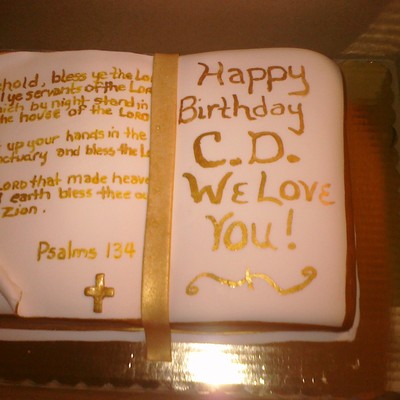 bless ye the
ye servants of the
by night stand in
the house of the LORD
up your hands in the
and bless the
LORD that made
earth bless thee
Zion.
Psalms 134
Happy
Birthday
C.D.
WE LOVE
YOU!